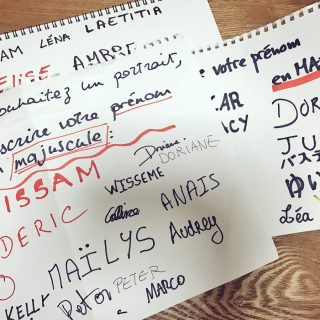 LÉNA LAETITIA
ELISE AMBRE
souhaitez un portrait,
scrire votre prénom
majuscule :
ISSAM
Doriane DORIANE
WISSEME
DERIC
ANAIS
MAÏLYS
Audrey
KELLY
Peter PETER
MARCO
: votre prénom
en MA
AR
CY
DOR
JU
パステ
ゆい
Léa